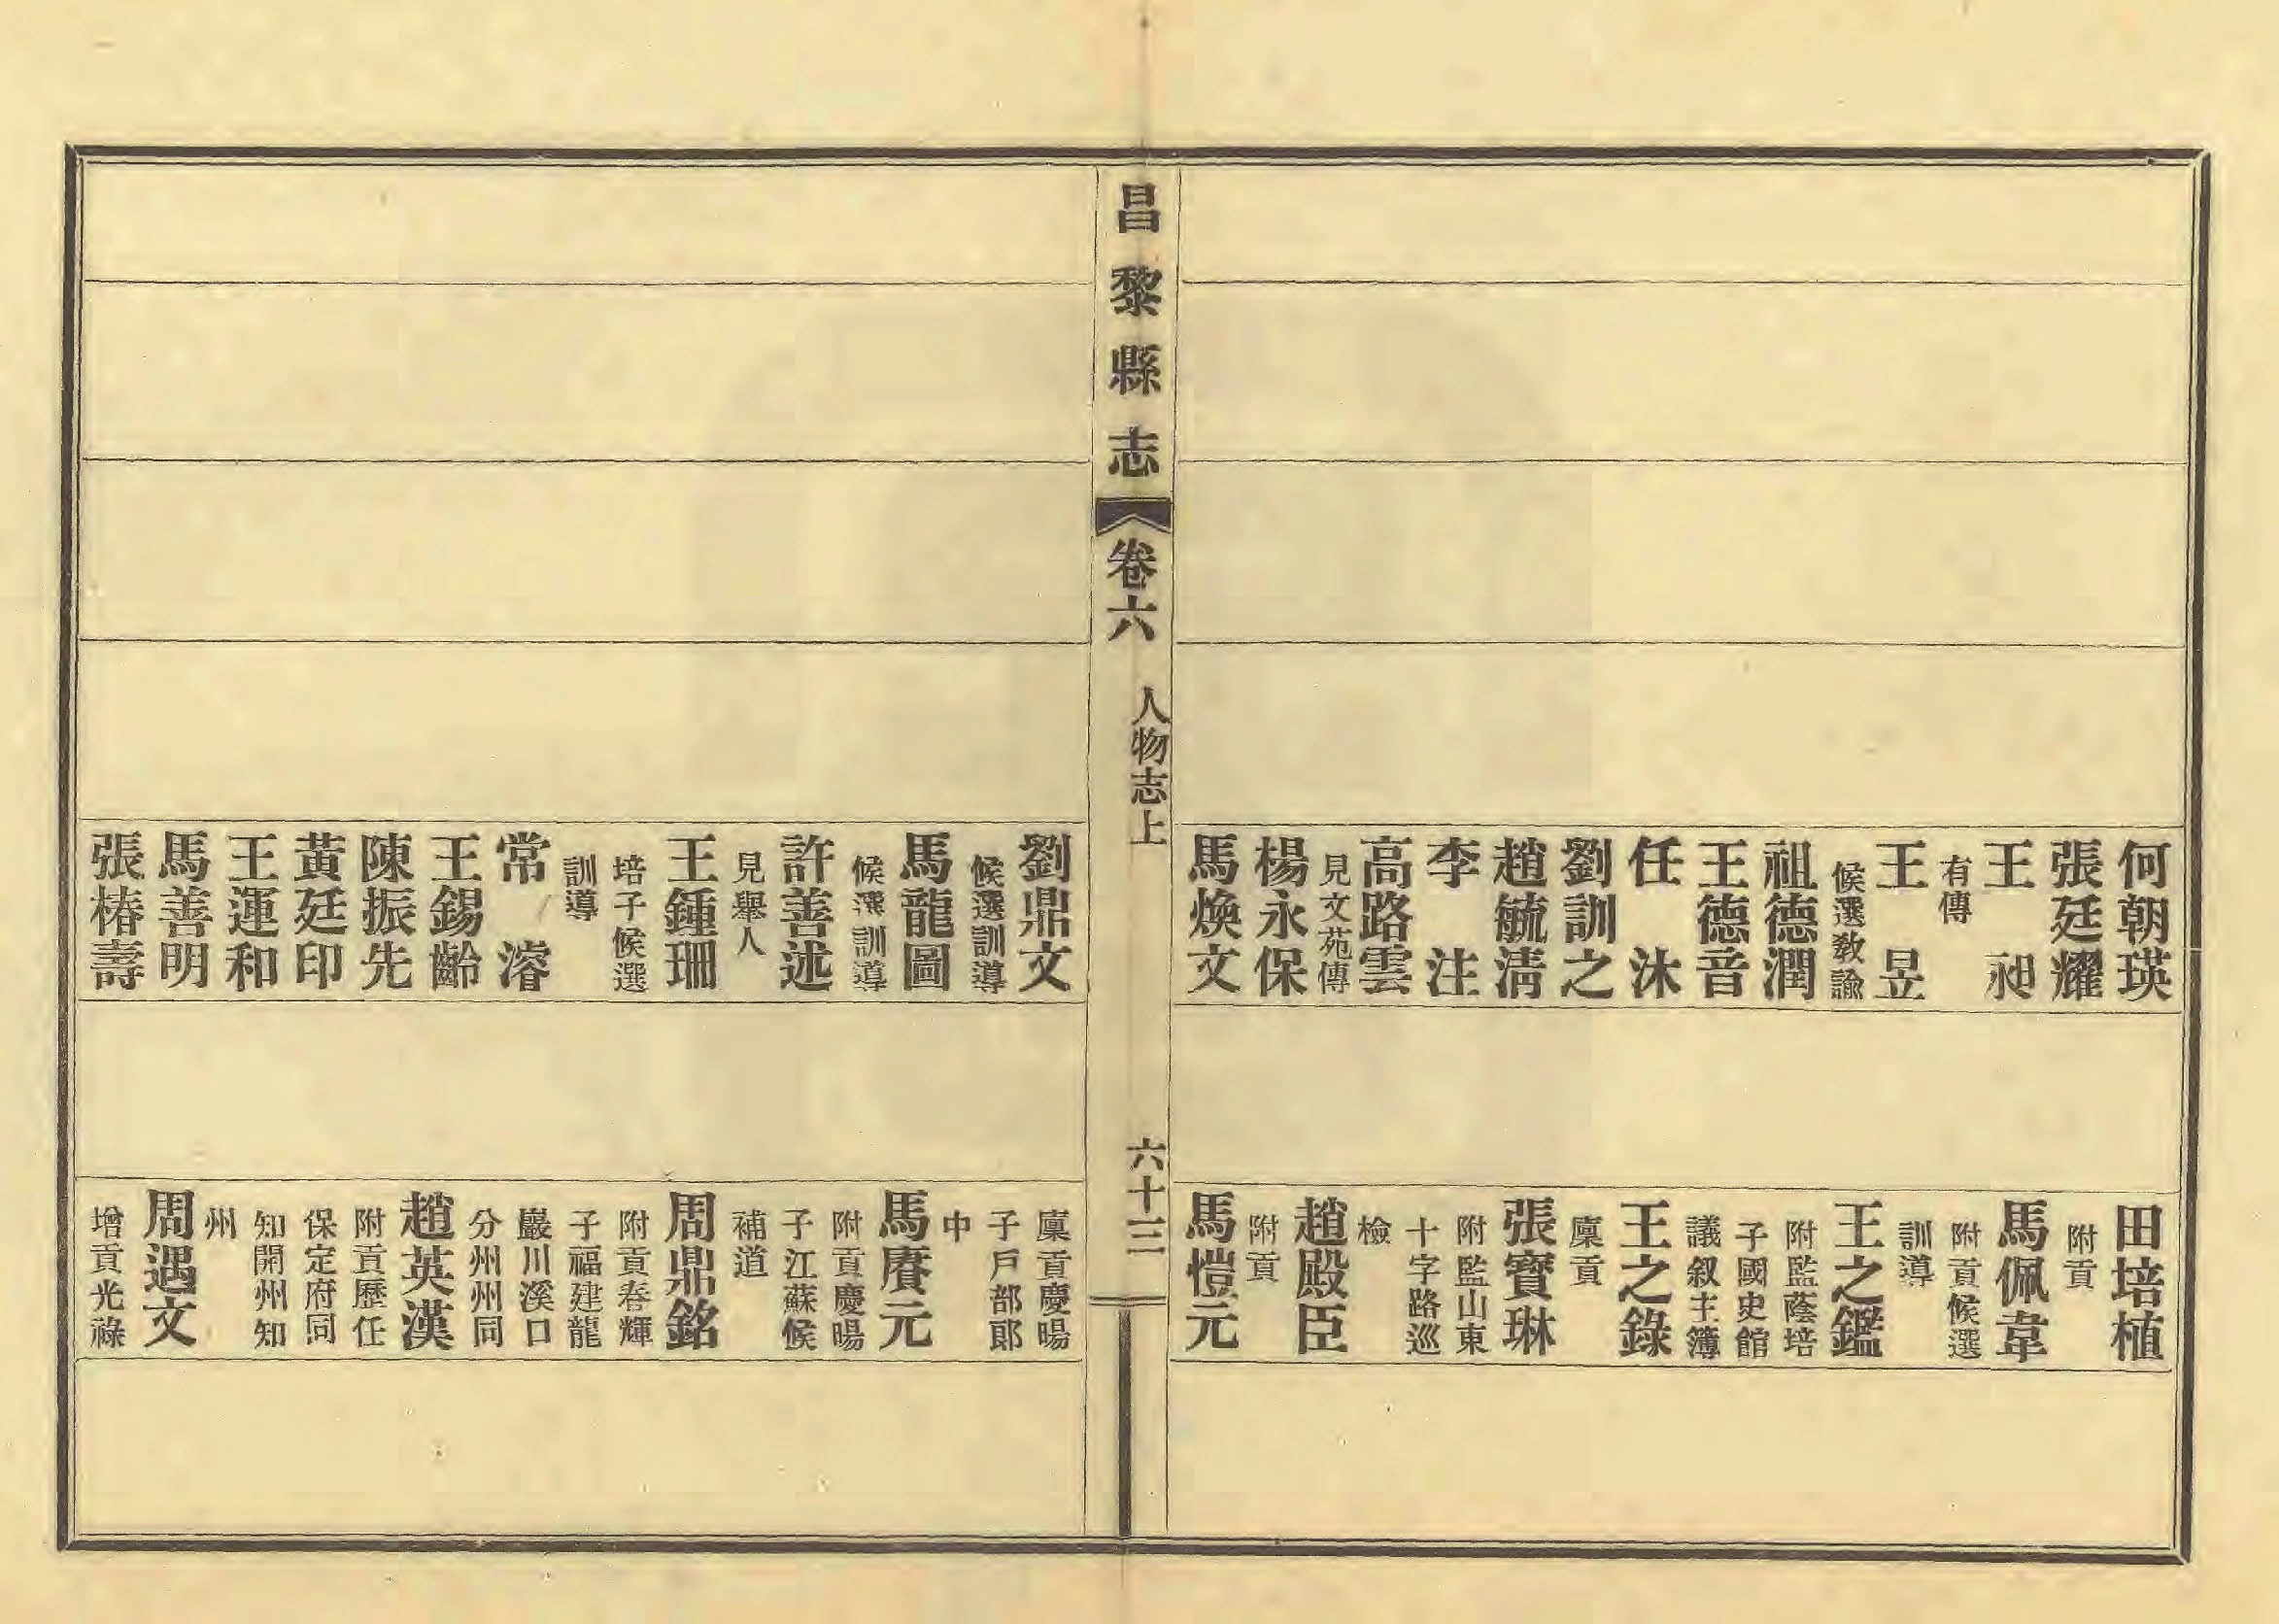 何朝瑛
張廷耀
王昶
有傳
王昱
候選教諭
祖德潤
王德音
任沐
劉訓之
趙毓清
李注
高路雲
見文苑傳
楊永保
馬煥文
田培植
附貢
馬佩韋
附貢候選
訓導
王之鑑
附監蔭培
子國史館
議叙主簿
王之錄
廩貢
張寶琳
附監山東
十字路巡
檢
趙殿臣
附貢
馬愷元
昌黎縣志
卷六
人物志上
六十三
劉鼎文
候選訓導
馬龍圖
候選訓導
許善述
見舉人
王鍾珊
培子候選
訓導
常濬
王錫齡
陳振先
黃廷印
王運和
馬善明
張椿壽
廩貢慶暘
子戶部郎
中
馬賡元
附貢慶暘
子江蘇候
補道
周鼎銘
附貢春輝
子福建龍
巖川溪口
分州州同
趙英漢
附貢歷任
保定府同
知開州知
州
周遇文
增貢光祿